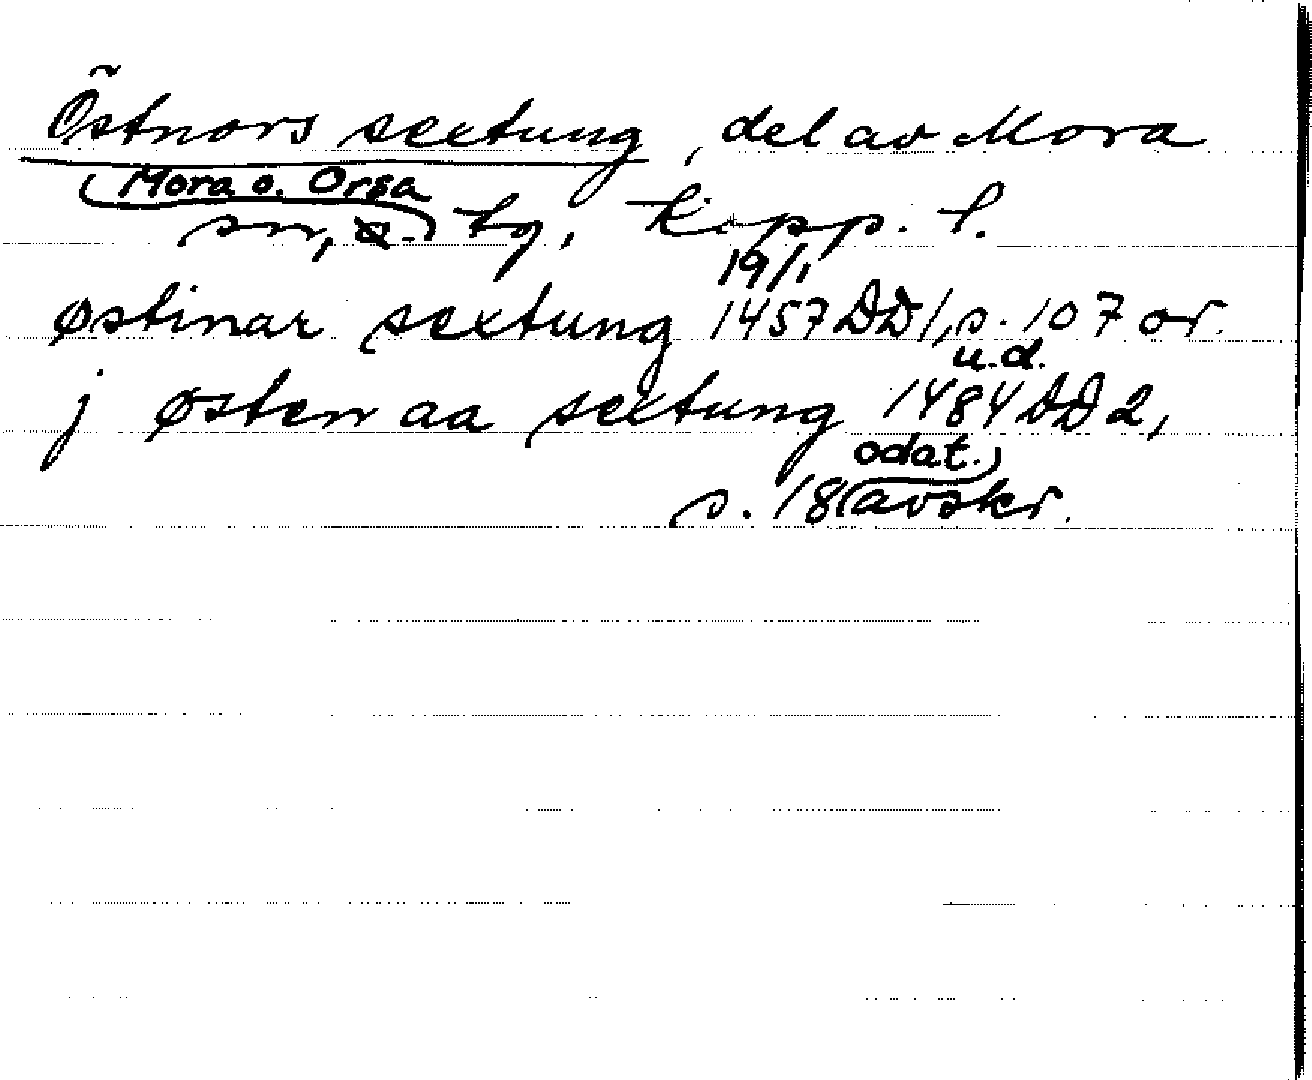 Östnors sextung, del av Mora
Mora o. Orsa
sn, tg, Kopp. l.
19/1
østinar sextung 1457 DD1, s. 107 or.
u.d.
j østen aa sextung 1484 DD2,
odat.
s. 18 avskr.